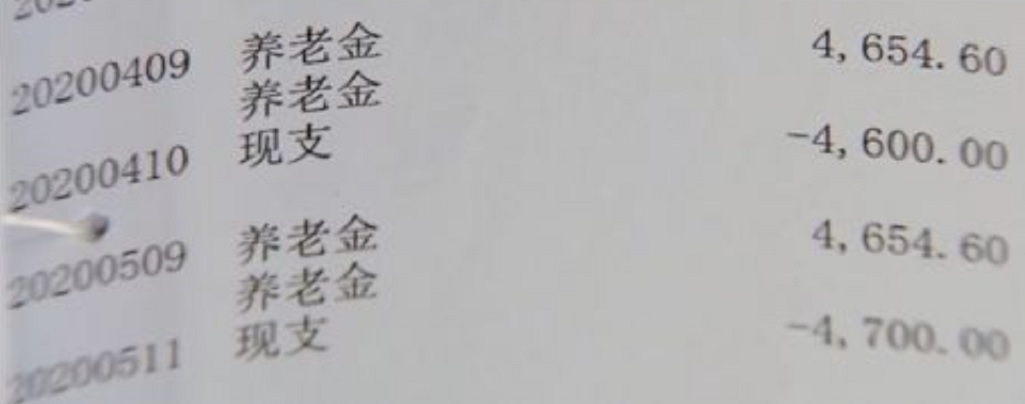 20200409 养老金 4,654.60
养老金
20200410 现支 -4,600.00
20200509 养老金 4,654.60
养老金
20200511 现支 -4,700.00